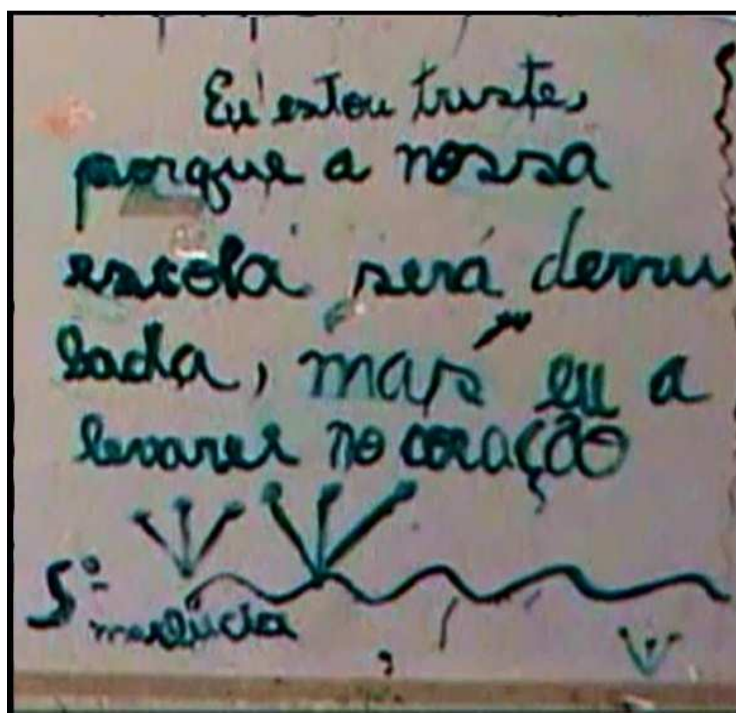 Eu estou triste,
porque a nossa
escola será derru
bada, mas eu a
levarei no coração
5º
marlucia